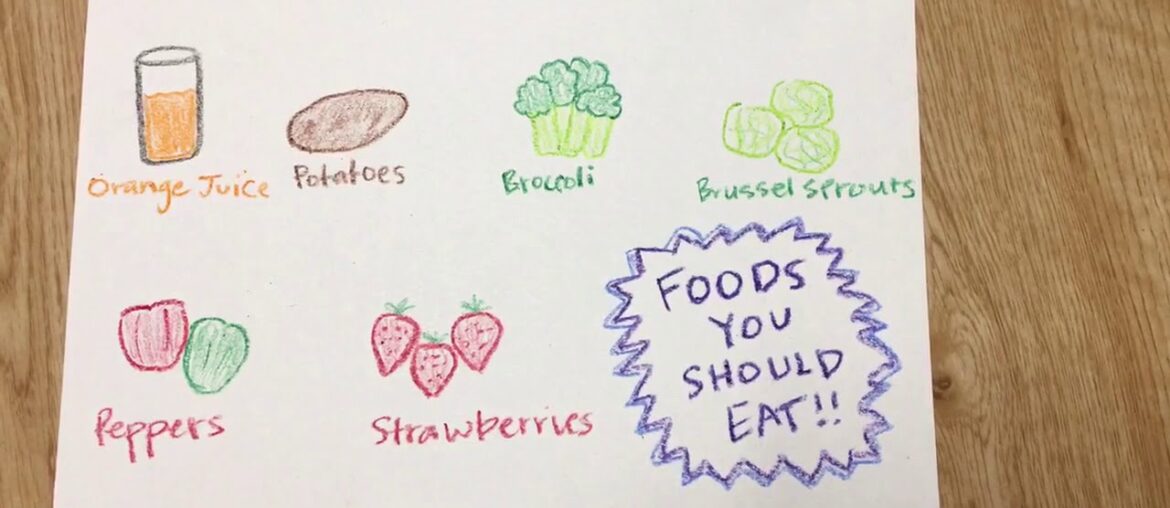 Orange Juice
Potatoes
Broccoli
Brussel Sprouts
Peppers
Strawberries
FOODS
YOU
SHOULD
EAT!!